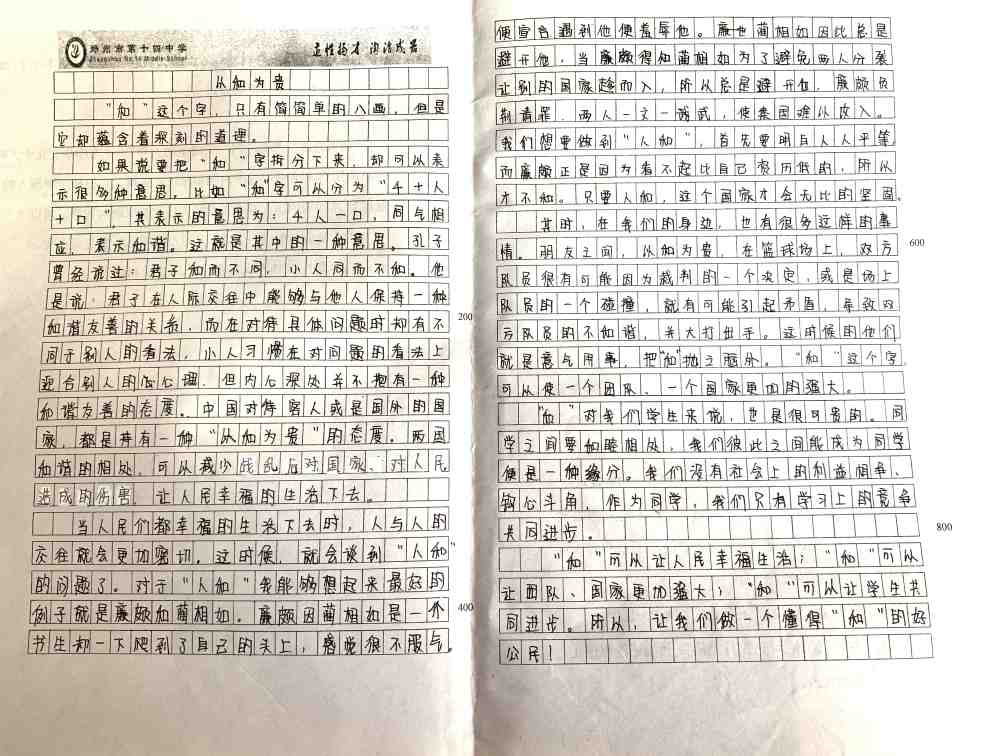 郑州市第十四中学
Zhengzhou No.14 Middle School
正性扬才 淘治成器
从和为贵
“和”这个字，只有简简单的八画，但是
它却蕴含着深刻的道理。
如果说要把“和”字拆分下来，却可以表
示很多种意思。比如“和”字可以分为“千+人
+口”，其表示的意思为：千人一口，同气相
应，表示和谐。这就是其中的一种意思。孔子
曾经说过：君子和而不同，小人同而不和。他
是说：君子在人际交往中能够与他人保持一种
和谐友善的关系，而在对待具体问题时却有不
200
同于别人的看法，小人习惯在对问题的看法上
迎合别人的心理，但内心深处并不抱有一种
和谐友善的态度。中国对待穷人或是国外的国
家，都是持有一种“从和为贵”的态度。两国
和谐的相处，可以减少战乱后对国家、对人民
造成的伤害，让人民幸福的生活下去。
当人民们都幸福的生活下去时，人与人的
交往就会更加密切。这时候，就会谈到“人和”
的问题了。对于“人和”我能够想起来最好的
例子就是廉颇和蔺相如。廉颇因蔺相如是一个
400
书生却一下爬到了自己的头上，感觉很不服气。
便宣合遇到他便羞辱他。蔺相如因此总是
避开他，当廉颇得知蔺相如为了避免两人分裂
让别的国家趁而入，所以总是避开他，廉颇负
荆请罪，两人一文一武，使秦国难以攻入。
我们想要做到“人和”，首先要明白人人平等
而廉颇正是因为看不起比自己资历低的，所以
才不和。只要人和，这个国家才会无比的坚固。
其时，在我们的身边，也有很多这样的事
600
情。朋友之间，从和为贵，在篮球场上，双方
队员很有可能因为裁判的一个决定，或是场上
队员的一个碰撞，就有可能引起矛盾，导致双
方队员的不和谐，并大打出手。这时候的他们
就是意气用事，把“和”抛之脑外。“和”这个字，
可以使一个团队、一个国家更加的强大。
“和”对我们学生来说，也是很可贵的。同
学之间要和睦相处，我们彼此之间能成为同学
便是一种缘分。我们没有社会上的利益相争、
钩心斗角，作为同学，我们只有学习上的竞争
共同进步。
800
“和”可以让人民幸福生活；“和”可以
让团队、国家更加强大；“和”可以让学生共
同进步。所以，让我们做一个懂得“和”的好
公民！